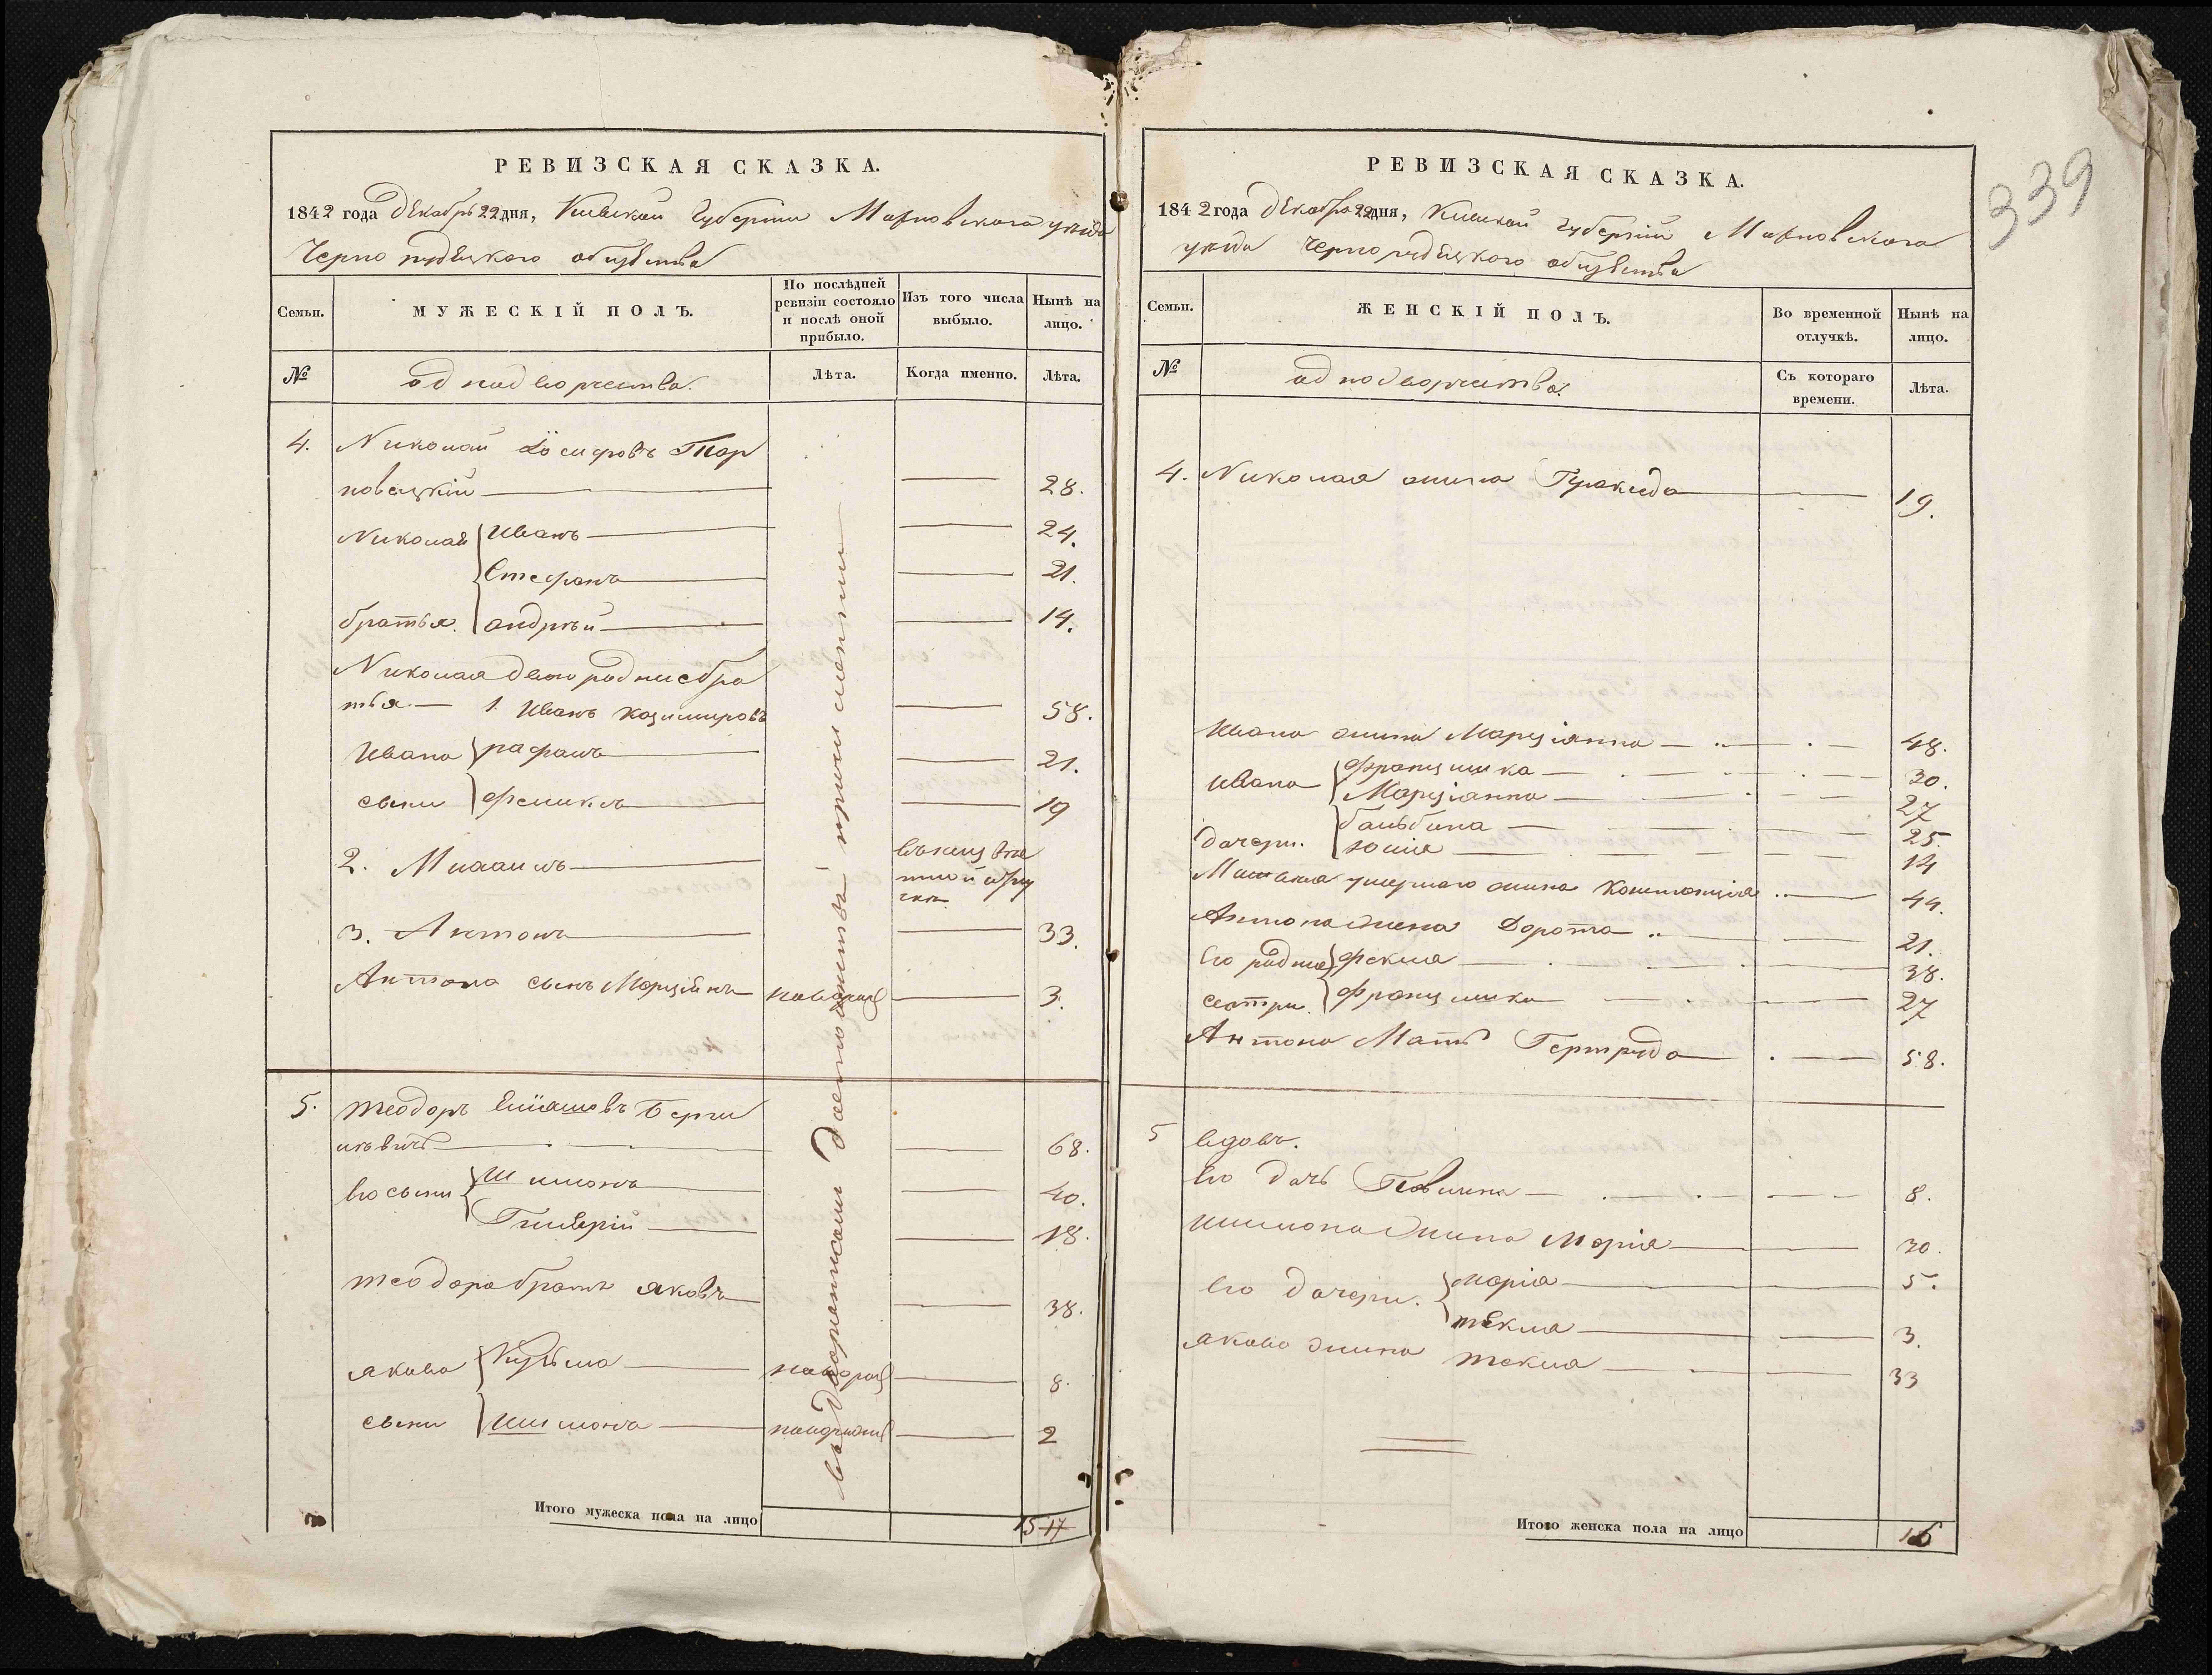 РЕВИЗСКАЯ СКАЗКА.
1842 года декабря 22 дня, Киевской Губернии Махновского уезда
Чернорудецкого общества
Семьи.
МУЖЕСКІЙ ПОЛЪ.
По послѣдней ревизіи состояло и послѣ оной прибыло.
Изъ того числа выбыло.
Нынѣ на лицо.
№
однодворчества.
Лѣта.
Когда именно.
Лѣта.
4. Николай Іосифовъ Тар
новецкій 28.
Николая Иванъ 24.
Стефанъ 21.
братья. андрѣй 14.
Николая двоюродние бра
тья 1. Иванъ казимировъ 58.
Ивана рафалъ 21.
сыни феликсъ 19
2. Михаилъ
3. Антонъ 33.
Антона сынъ Марцѣинъ 3.
5. теодоръ Беръни
цкевичъ 68.
Его сыни Шимонъ 40.
18.
теодора братъ яковъ 38.
якова Кузьма 8.
сыни Шимонъ 2
Итого мужеска пола на лицо 15 17
РЕВИЗСКАЯ СКАЗКА.
1842 года декабря 22 дня, Киевской Губерніи Махновского
уезда Чернорудецкого общества
339
Семьи.
ЖЕНСКІЙ ПОЛЪ.
Во временной отлучкѣ.
Нынѣ на лицо.
№
однодворчества.
Съ котораго времени.
Лѣта.
4. Николая жина 19.
Ивана жина Марціянна 48.
Ивана Францишка 30.
Марціянна 27
бальбина 25.
дочери. юлія 14
Михаила умершаго жина Констанція 44.
Антона жена Дорота 21.
Его родние Фекла 38.
сестри. Францишка 27
Антона Мать Гертруда 58.
5 вдовъ.
Его дочь 8.
шимона жина Марія 30.
Его дочери. марія 5.
текля 3.
якова жина текля 33
Итого женска пола на лицо 16